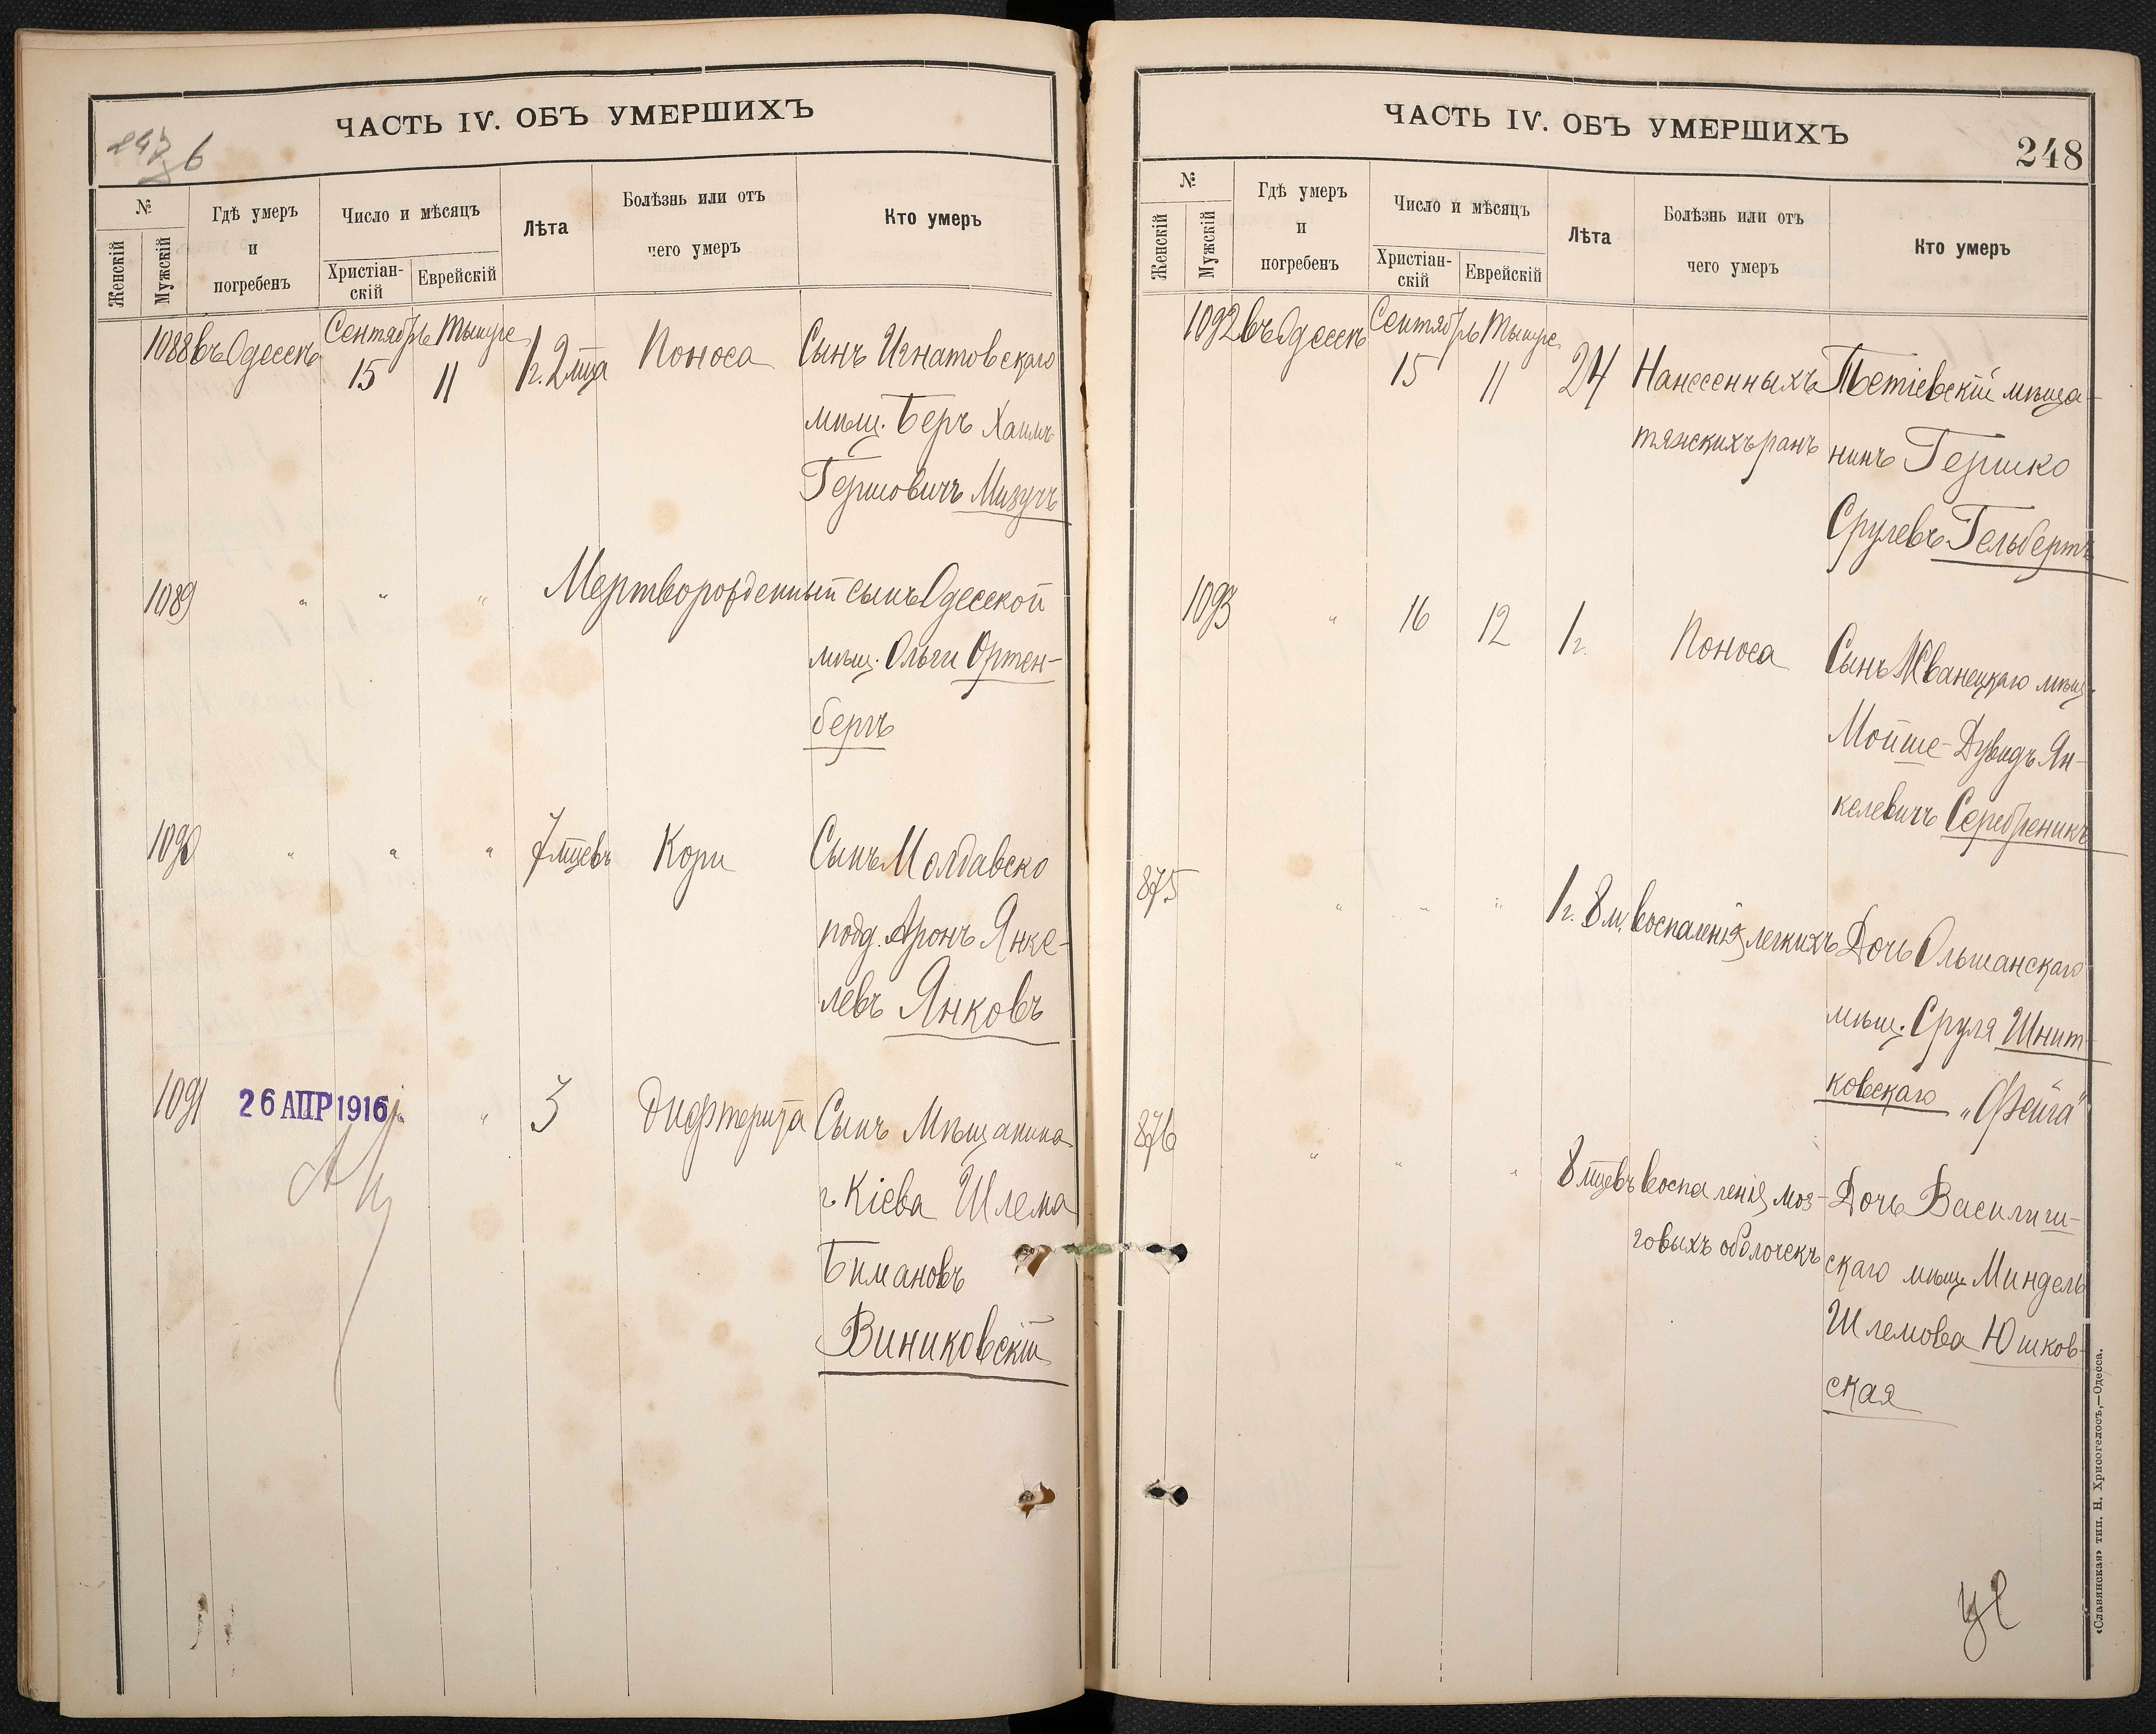 ЧАСТЬ IV. ОБЪ УМЕРШИХЪ
№
Женскій
Мужскій
Гдѣ умеръ
и
погребенъ
Число и мѣсяцъ
Христіан-
скій
Еврейскій
Лѣта
Болѣзнь или отъ
чего умеръ
Кто умеръ
1088 въ Одессѣ Сентябрь Тышре 1 г. 2 мца Поноса Сынъ Игнатовскаго
15 11
мѣщ. Беръ Хаимъ
Гершовичъ Мизучъ
1089 " " " Мертворожденный сынъ Одесской
мѣщ. Ольги Ортен-
бергъ
1090 " " " 7 мцевъ Кори Сынъ Молдавско
подд. Аронъ Янке-
левъ Янковъ
1091 26 АПР 1916 " 3 Дифтерита Сынъ Мѣщанина
г. Кіева Шлема
Бимановъ
Виниковскій
ЧАСТЬ IV. ОБЪ УМЕРШИХЪ
248
№
Женскій
Мужскій
Гдѣ умеръ
и
погребенъ
Число и мѣсяцъ
Христіан-
скій
Еврейскій
Лѣта
Болѣзнь или отъ
чего умеръ
Кто умеръ
1092 въ Одессѣ Сентябрь Тышре
15 11 24 Нанесенныхъ Тетіевскій мѣща-
тяжскихъ ранъ нинъ Гершко
Срулевъ Гельбертъ
1093 " 16 12 1 г. Поноса Сынъ Жванецкаго мѣщ.
Мойше-Дувидъ Ян-
келевичъ Серебреникъ
875 " " " 1 г. 8 м. Воспаленія легкихъ Дочь Ольшанскаго
мѣщ. Сруля Шнит-
ковскаго „Фейга"
876 " " " 8 мцевъ Воспаленія моз- Дочь Василиш-
говыхъ оболочекъ скаго мѣщ. Миндель
Шлемова Юшков-
ская
«Славянская» тип. Н. Хрисогелосъ,—Одесса.